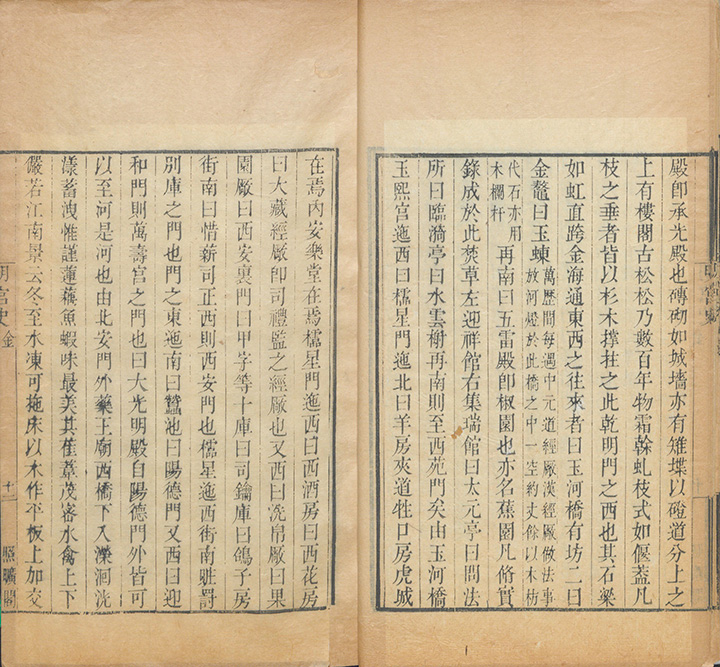 殿卽承光殿也磚砌如城墻亦有雉堞以磴道分上之
上有樓閣古松松乃數百年物霜榦虬枝式如偃蓋凡
枝之垂者皆以杉木撐拄之此乾明門之西也其石梁
如虹直跨金海通東西之往來者曰玉河橋有坊二曰
金鰲曰玉蝀萬歷間每遇中元道經廠漢經廠做法事
放河燈於此橋之中一空約丈餘以木枋
代石亦用
木欄杆
再南曰五雷殿卽椒園也亦名蕉園凡脩實
錄成於此焚草左迎祥館右集瑞館曰太元亭曰問法
所曰臨漪亭曰水雲榭再南則至西苑門矣由玉河橋
玉熙宮迤西曰欞星門迤北曰羊房夾道牲口房虎城
在焉內安樂堂在焉欞星門迤西曰西酒房曰西花房
曰大藏經廠卽司禮監之經廠也又西曰洗帛廠曰果
園廠曰西安裏門曰甲字等十庫曰司鑰庫曰鴿子房
街南曰惜薪司正西則西安門也欞星迤西街南贓罰
別庫之門也門之東迤南曰蠶池曰陽德門又西曰迎
和門則萬壽宮之門也曰大光明殿自陽德門外皆可
以至河是河也由北安門外藥王廟西橋下入濼洄洸
漾蓄洩惟謹蓮藕魚蝦味最美其萑葦茂密水禽上下
儼若江南景云冬至水凍可拖床以木作平板上加交
明宮史 金
十二
照曠閣